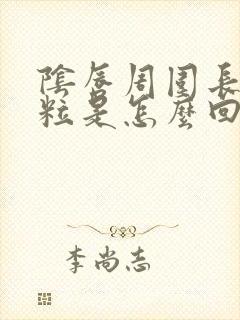 陰唇周圍長
粒是怎麼回
李尚志